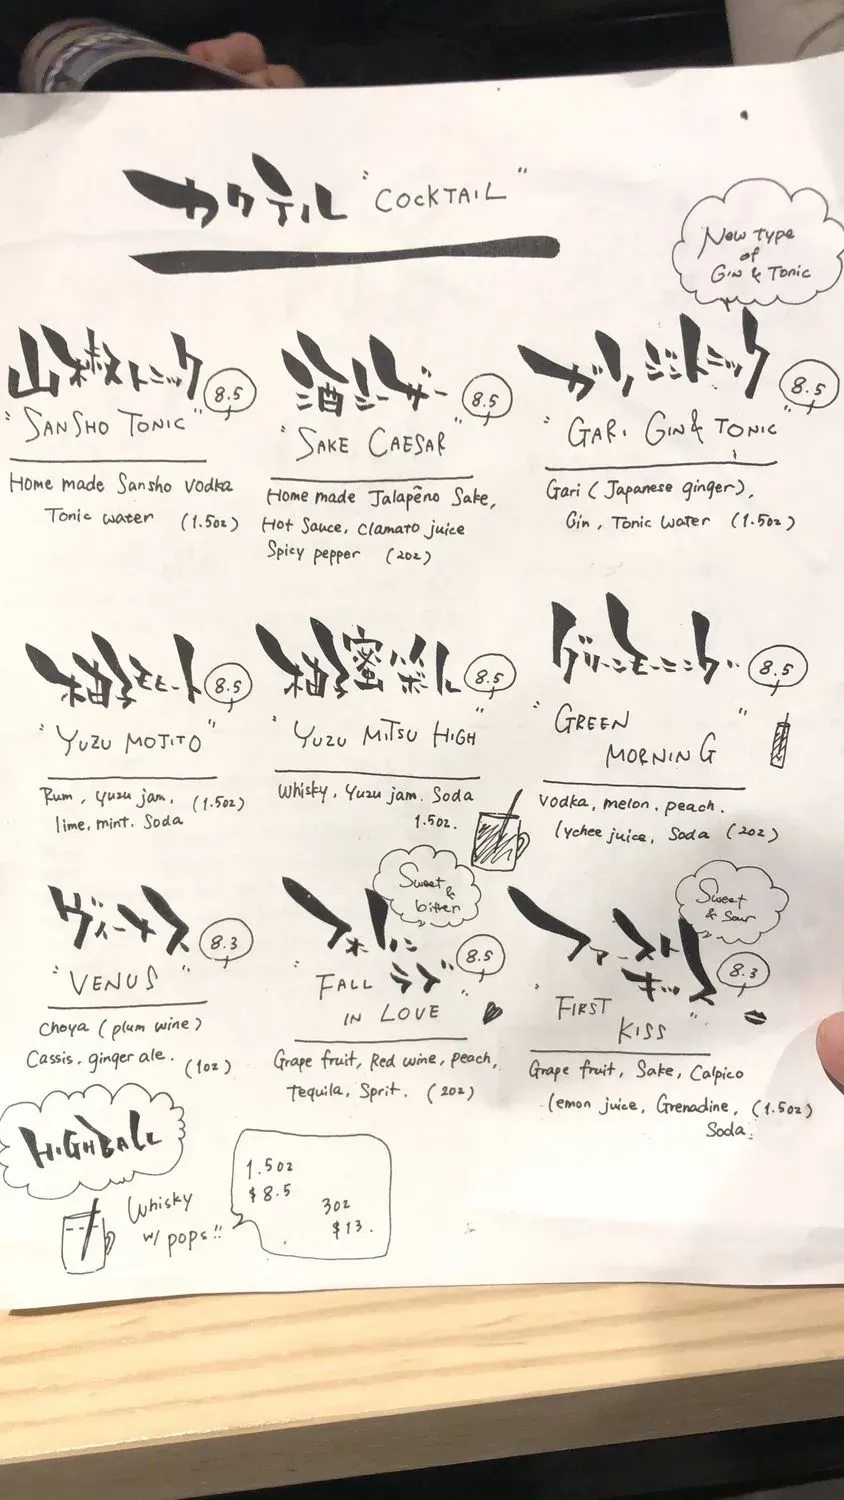 カクテル "COCKTAIL"
New type
of
Gin & Tonic
山椒トニック 8.5
"SANSHO TONIC"
Home made Sansho vodka
Tonic water (1.5oz)
酒シーザー 8.5
"SAKE CAESAR"
Home made Jalapeño Sake,
Hot Sauce, Clamato juice
Spicy pepper (2oz)
ガリジントニック 8.5
"GARI GIN & TONIC"
Gari (Japanese ginger),
Gin, Tonic water (1.5oz)
柚子モヒート 8.5
"YUZU MOJITO"
Rum, Yuzu jam, (1.5oz)
lime, mint. Soda
柚子蜜 8.5
"YUZU MITSU HIGH"
Whisky, Yuzu jam. Soda
1.5oz.
グリーンモーニング 8.5
"GREEN
MORNING"
Vodka, melon, peach.
lychee juice, Soda (2oz)
ヴィーナス 8.3
"VENUS"
Choya (plum wine)
Cassis, ginger ale. (1oz)
Sweet &
bitter
フォーリン
ラブ 8.5
"FALL
IN LOVE"
Grape fruit, Red wine, peach,
Tequila, Sprit. (2oz)
Sweet
& Sour
ファースト
キッス 8.3
"FIRST
KISS"
Grape fruit, Sake, Calpico
lemon juice, Grenadine, (1.5oz)
Soda.
HIGHBALL
Whisky
w/ pops!!
1.5oz
$8.5
3oz
$13.